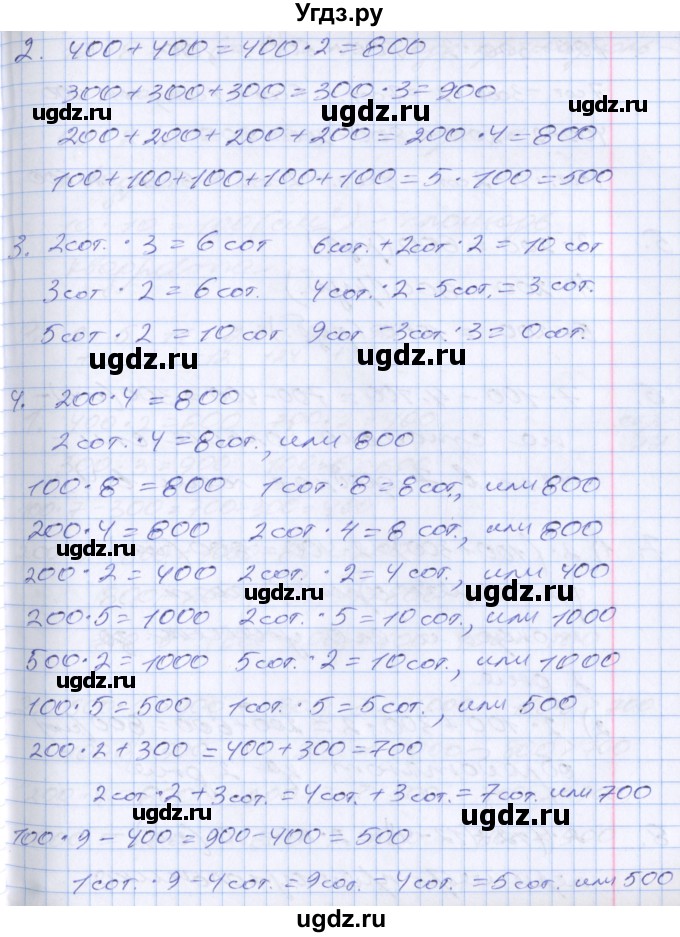 Угдз.ру
2. 400 + 400 = 400 · 2 = 800
300 + 300 + 300 = 300 · 3 = 900
ugdz.ru ugdz.ru ugdz.ru
200 + 200 + 200 + 200 = 200 · 4 = 800
100 + 100 + 100 + 100 + 100 = 5 · 100 = 500
3. 2 сот. · 3 = 6 сот 6 сот. + 2 сот · 2 = 10 сот
3 сот · 2 = 6 сот. 4 сот. · 2 - 5 сот. = 3 сот.
5 сот · 2 = 10 сот 9 сот - 3 сот. · 3 = 0 сот.
ugdz.ru ugdz.ru
4. 200 · 4 = 800
2 сот. · 4 = 8 сот., или 800
100 · 8 = 800 1 сот · 8 = 8 сот., или 800
200 · 4 = 800 2 сот · 4 = 8 сот., или 800
ugdz.ru ugdz.ru
200 · 2 = 400 2 сот. · 2 = 4 сот., или 400
ugdz.ru ugdz.ru
200 · 5 = 1000 2 сот. · 5 = 10 сот., или 1000
500 · 2 = 1000 5 сот. · 2 = 10 сот., или 1000
ugdz.ru ugdz.ru
100 · 5 = 500 1 сот. · 5 = 5 сот., или 500
200 · 2 + 300 = 400 + 300 = 700
2 сот · 2 + 3 сот. = 4 сот. + 3 сот. = 7 сот. или 700
ugdz.ru ugdz.ru
100 · 9 - 400 = 900 - 400 = 500
1 сот. · 9 - 4 сот. = 9 сот. - 4 сот. = 5 сот. или 500
ugdz.ru